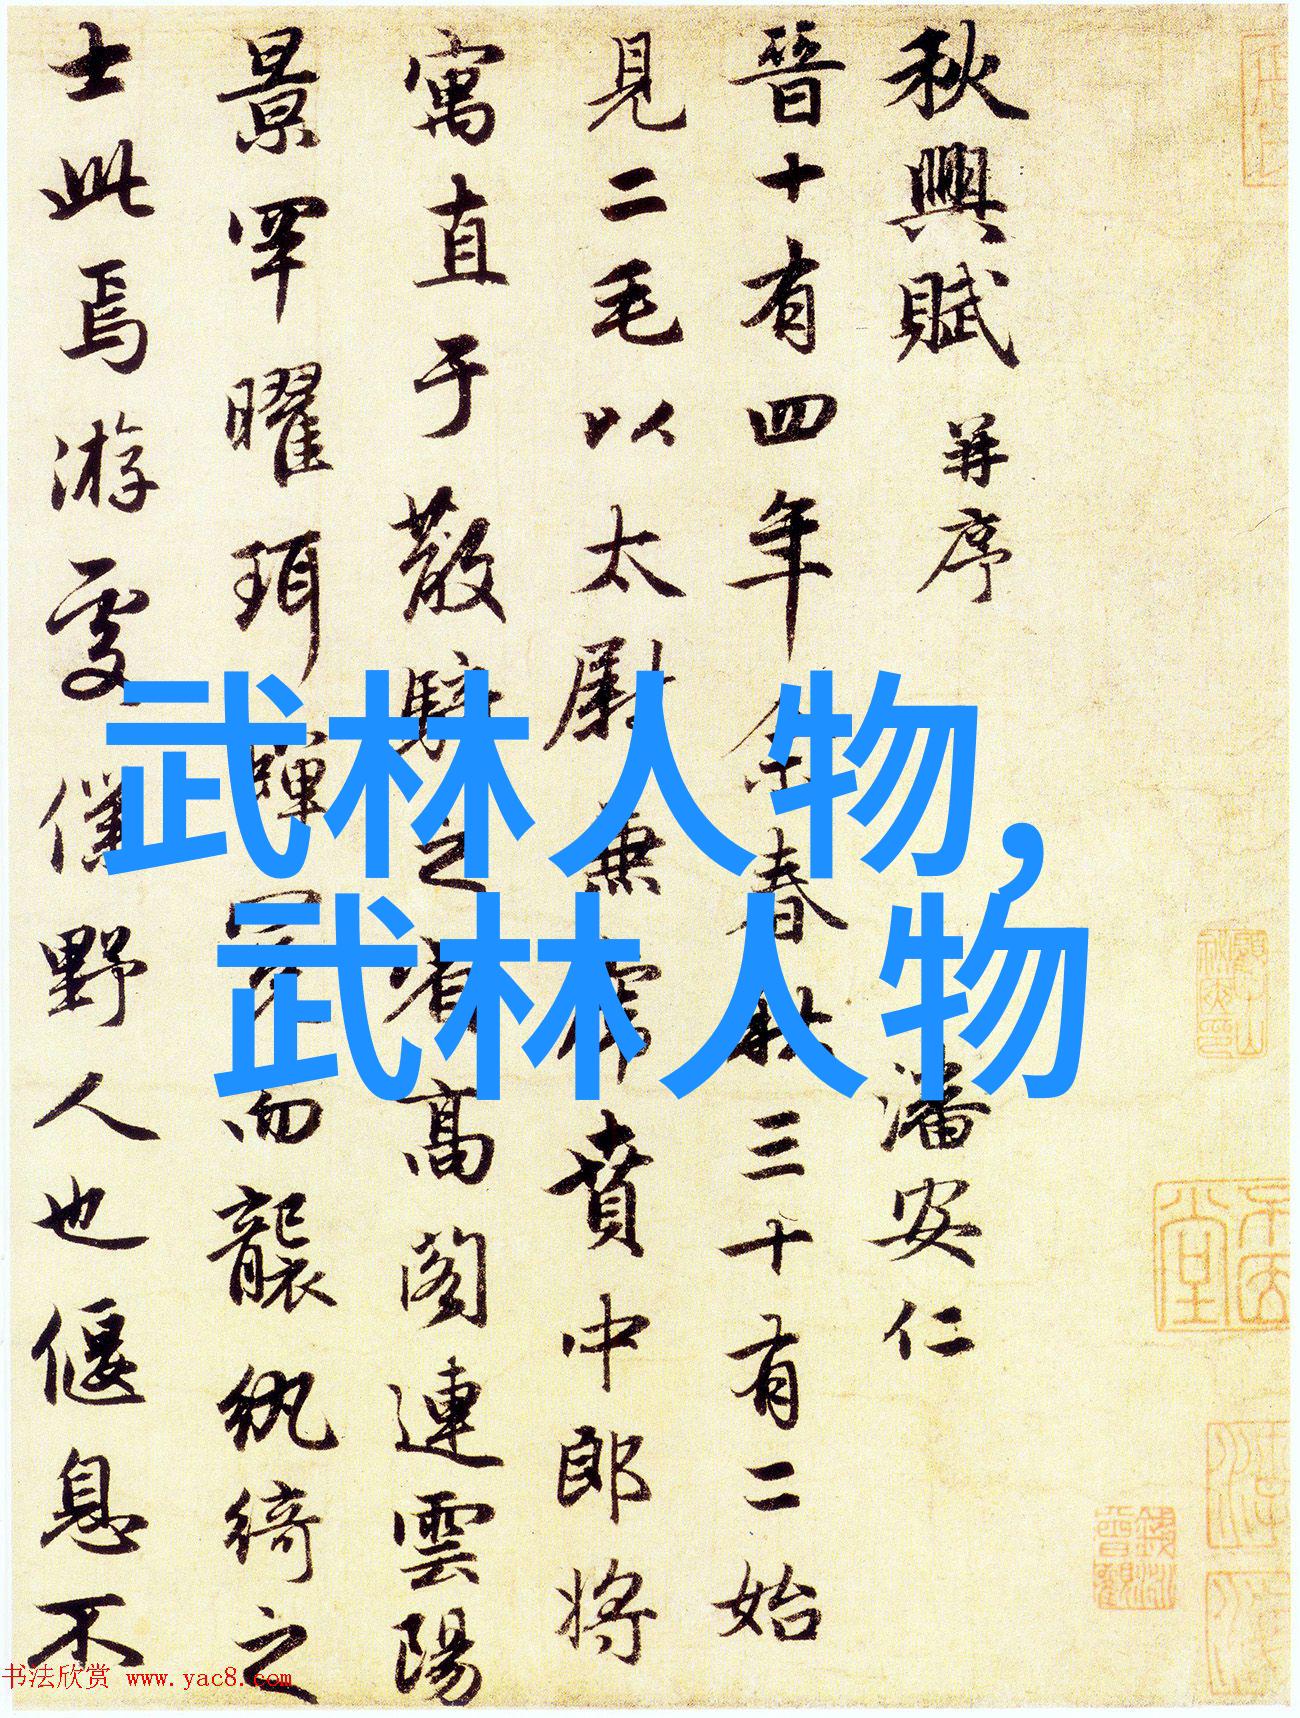 秋興賦 并序 潘安仁
晉十有四年余春秋三十有二始
見二毛以太尉兼虎賁中郎将
寓直于散騎之省高閣連雲陽
景罕曜珥蟬冕而襲紈綺之
士此焉游處僕野人也偃息不
武林人物,
武林人物
书法欣赏 www.yac8.com